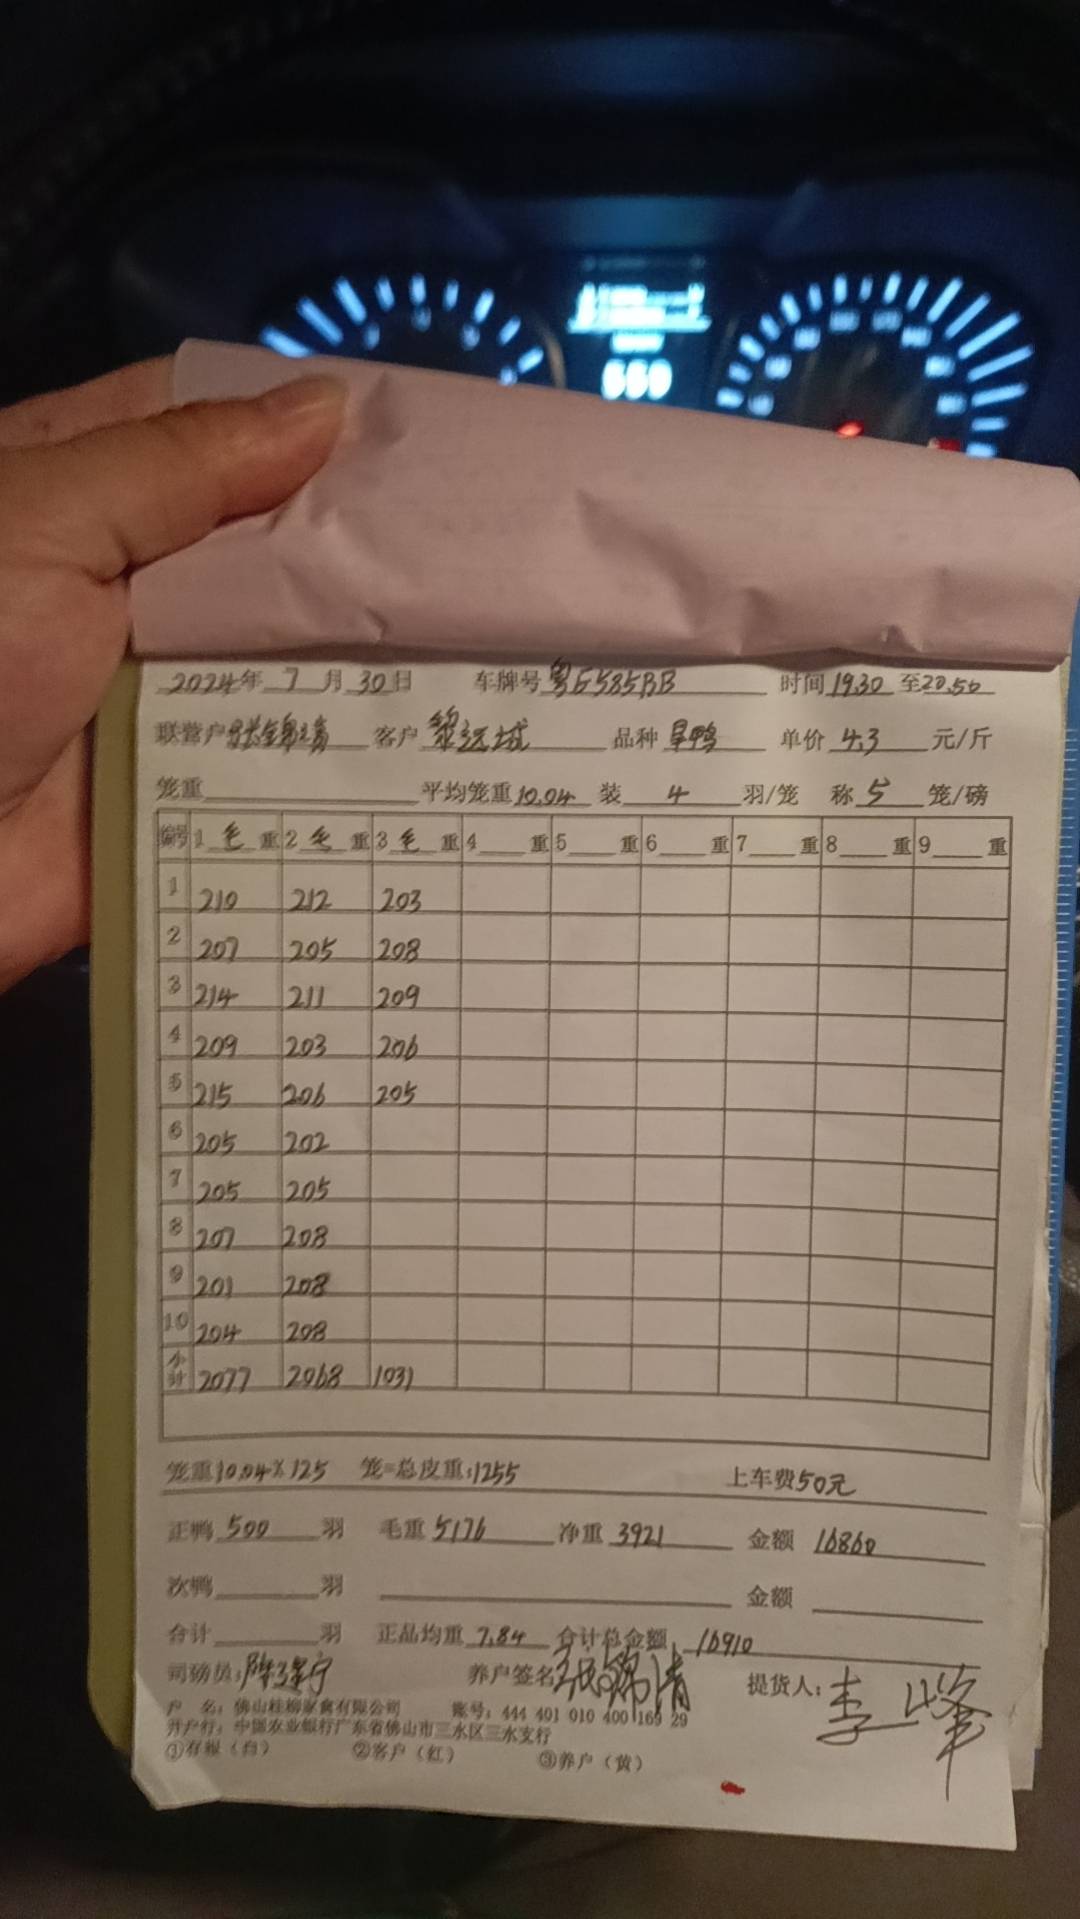 2024年 7 月 30 日 车牌号 粤G585BB 时间 19.30 至 20.50
联营户 张锦清 客户 黎远城 品种 旱鸭 单价 4.3 元/斤
笼重 平均笼重 10.04 装 4 羽/笼 称 5 笼/磅
编号 1 毛 重 2 毛 重 3 毛 重 4 重 5 重 6 重 7 重 8 重 9 重
1 210 212 203
2 207 205 208
3 214 211 209
4 209 203 206
5 215 206 205
6 205 202
7 205 205
8 207 208
9 201 208
10 204 208
小计 2077 2068 1031
笼重 10.04 X 125 笼=总皮重: 1255 上车费 50元
正鸭 500 羽 毛重 5176 净重 3921 金额 16860
次鸭 羽 金额
合计 羽 正品均重 7.84 合计总金额 16910
司磅员: 养户签名 张锦清 提货人: 李峰
户 名: 佛山桂柳家禽有限公司 账号: 444 401 010 400 169 29
开户行: 中国农业银行广东省佛山市三水区三水支行
①存根（白） ②客户（红） ③养户（黄）